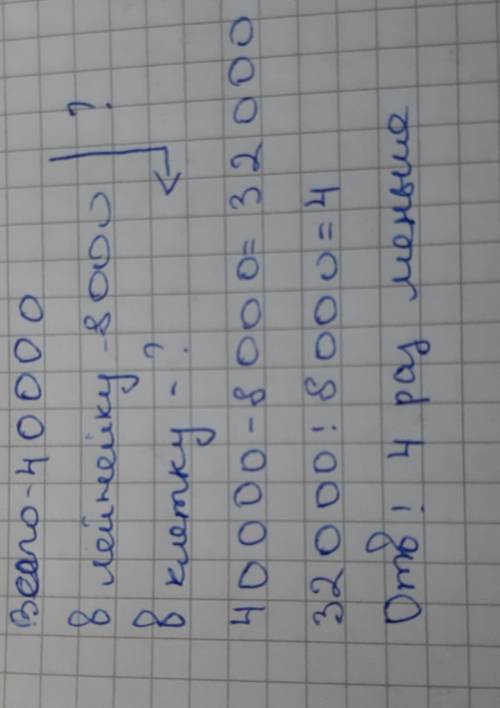 Всего-40000
в лейнейку-8000 ?
в клетку-?
40000-8000=32000
32000:8000=4
Отв: 4 раз меньше